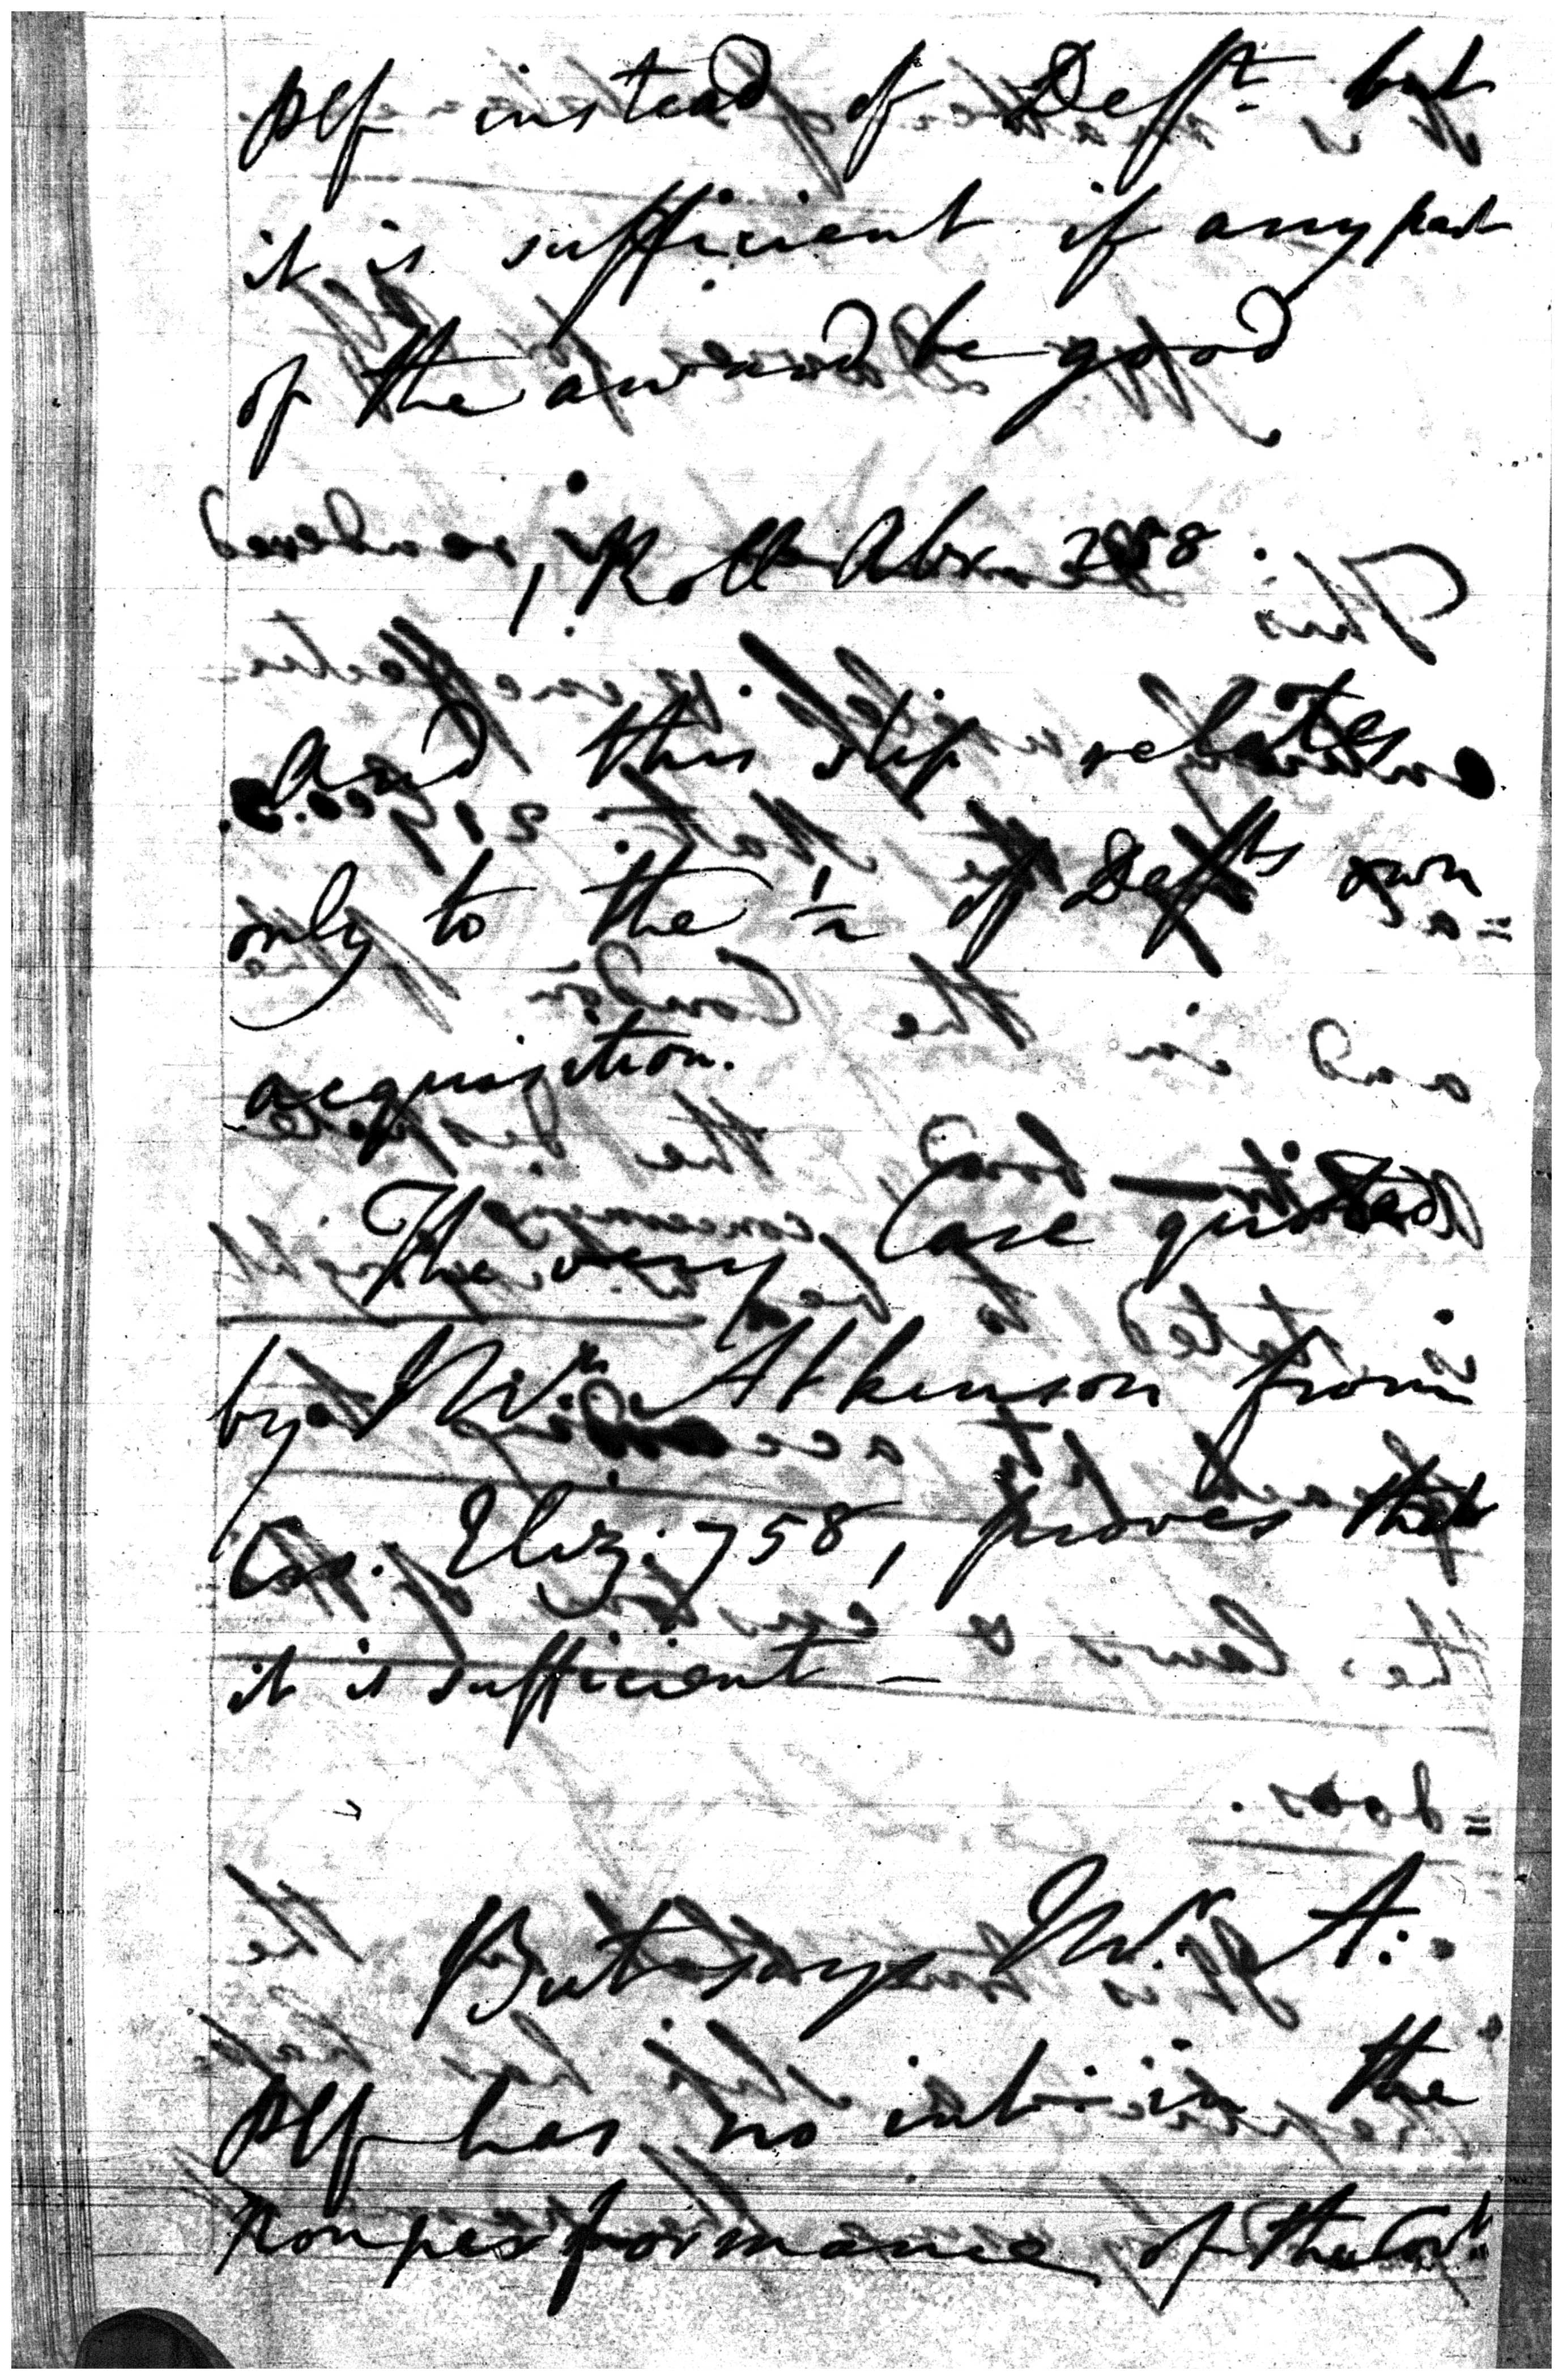 Plf instead of Deft. but
it is sufficient if any part
of the award be good
1, Roll Abr 258.
And this slip relates
only to the ½ of Defts own
acquisition.
The very Case quoted
by Mr. Atkinson from
Cro. Eliz. 758, proves that
it is sufficient —
But says Mr. A:
Plf has no int: in the
nonperformance of the